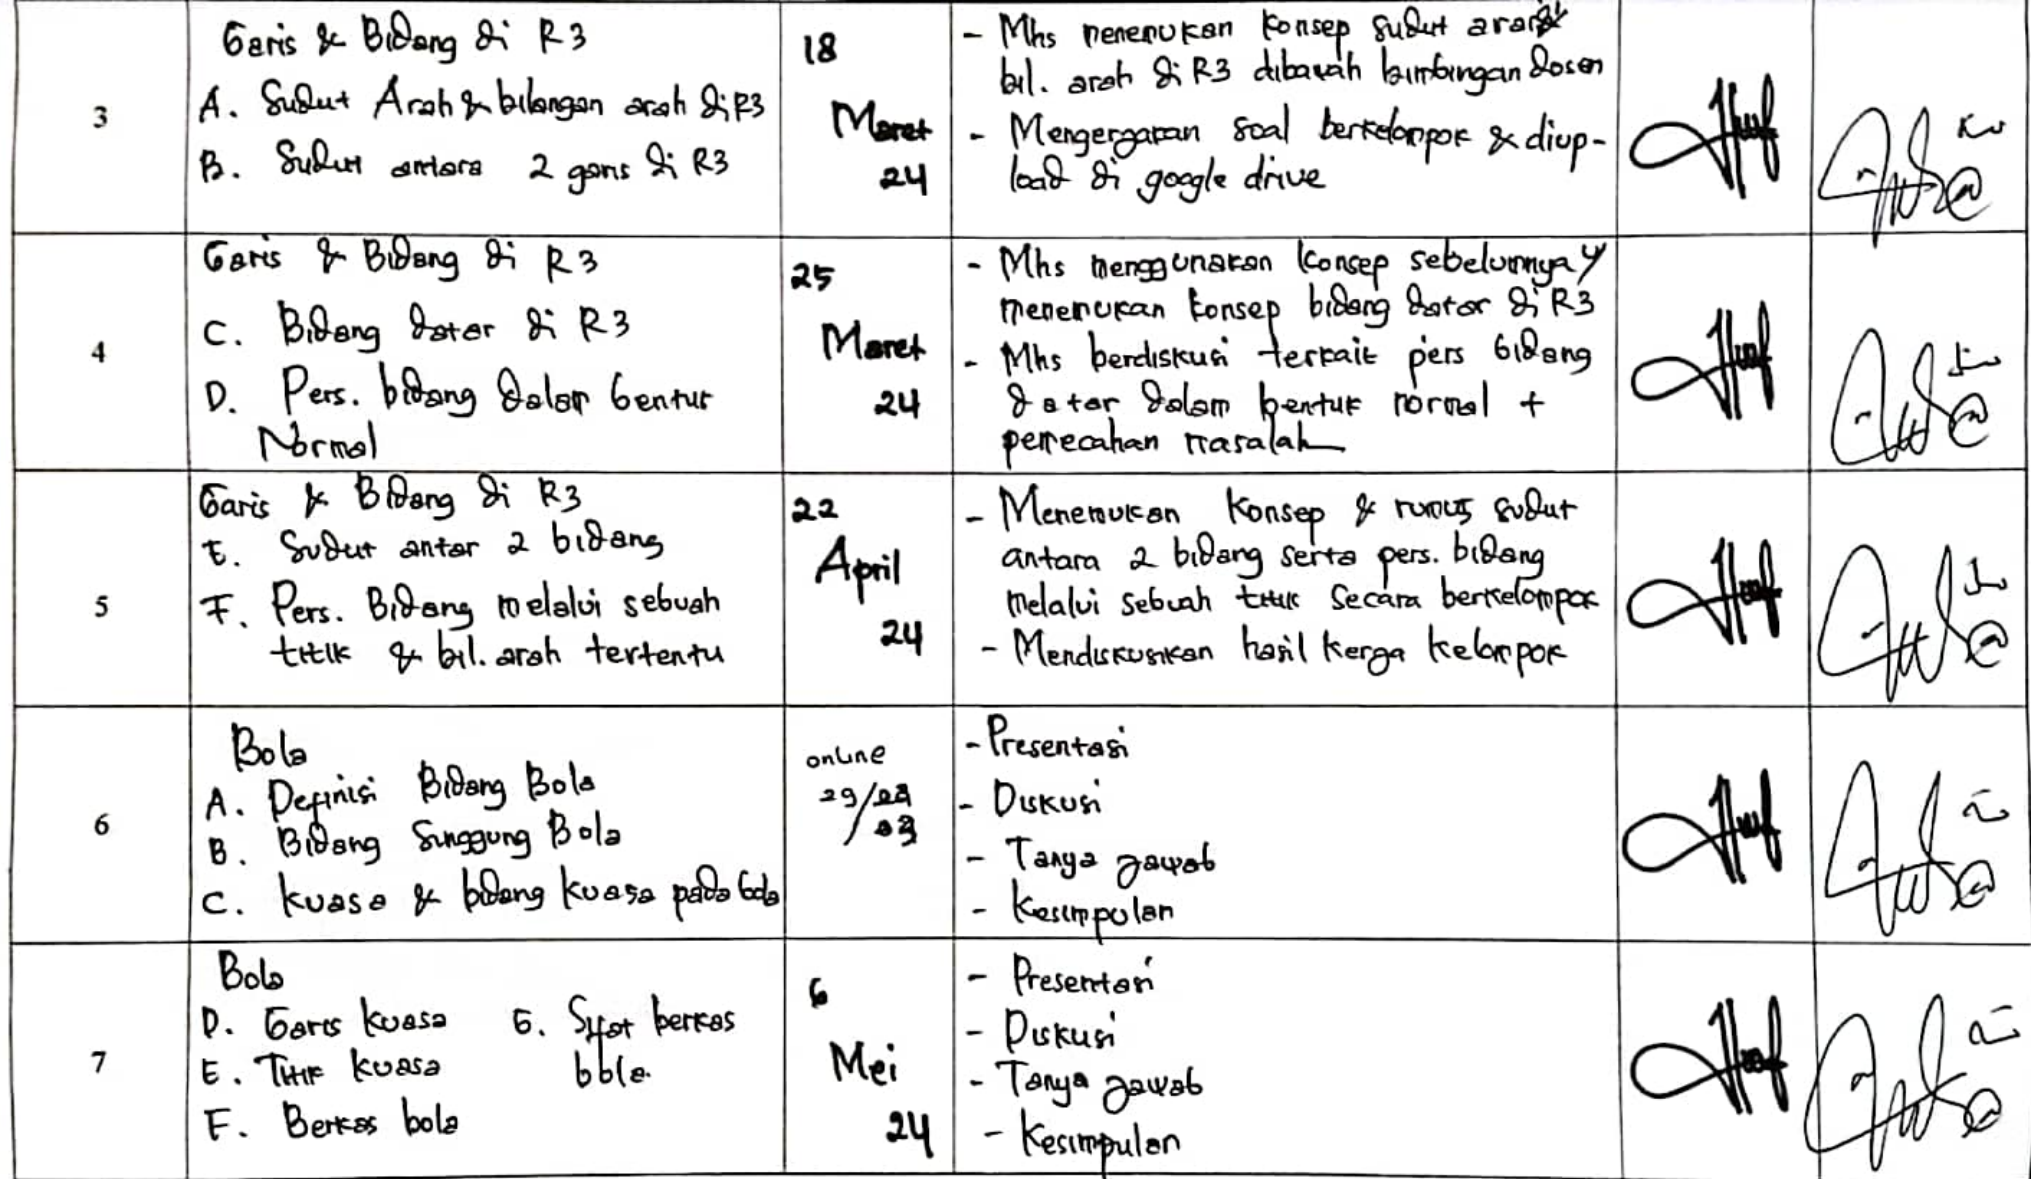 3
Garis & Bidang di R3
A. Sudut Arah & bilangan arah di R3
B. Sudut antara 2 garis di R3
18
Maret
24
- Mhs menemukan konsep sudut arah &
bil. arah di R3 dibawah bimbingan dosen
- Mengerjakan soal berkelompok & diup-
load di google drive
4
Garis & Bidang di R3
C. Bidang datar di R3
D. Pers. bidang dalam bentuk
Normal
25
Maret
24
- Mhs menggunakan konsep sebelumnya
menemukan konsep bidang datar di R3
- Mhs berdiskusi terkait pers bidang
datar dalam bentuk normal +
pemecahan masalah
5
Garis & Bidang di R3
E. Sudut antar 2 bidang
F. Pers. Bidang melalui sebuah
titik & bil. arah tertentu
22
April
24
- Menemukan konsep & rumus sudut
antara 2 bidang serta pers. bidang
melalui sebuah titik secara berkelompok
- Mendiskusikan hasil kerja kelompok
6
Bola
A. Definisi Bidang Bola
B. Bidang Singgung Bola
C. Kuasa & bidang kuasa pada bola
online
29/
- Presentasi
- Diskusi
- Tanya jawab
- Kesimpulan
7
Bola
D. Garis kuasa G. Sifat berkas
E. Titik kuasa bola.
F. Berkas bola
6
Mei
24
- Presentasi
- Diskusi
- Tanya jawab
- Kesimpulan